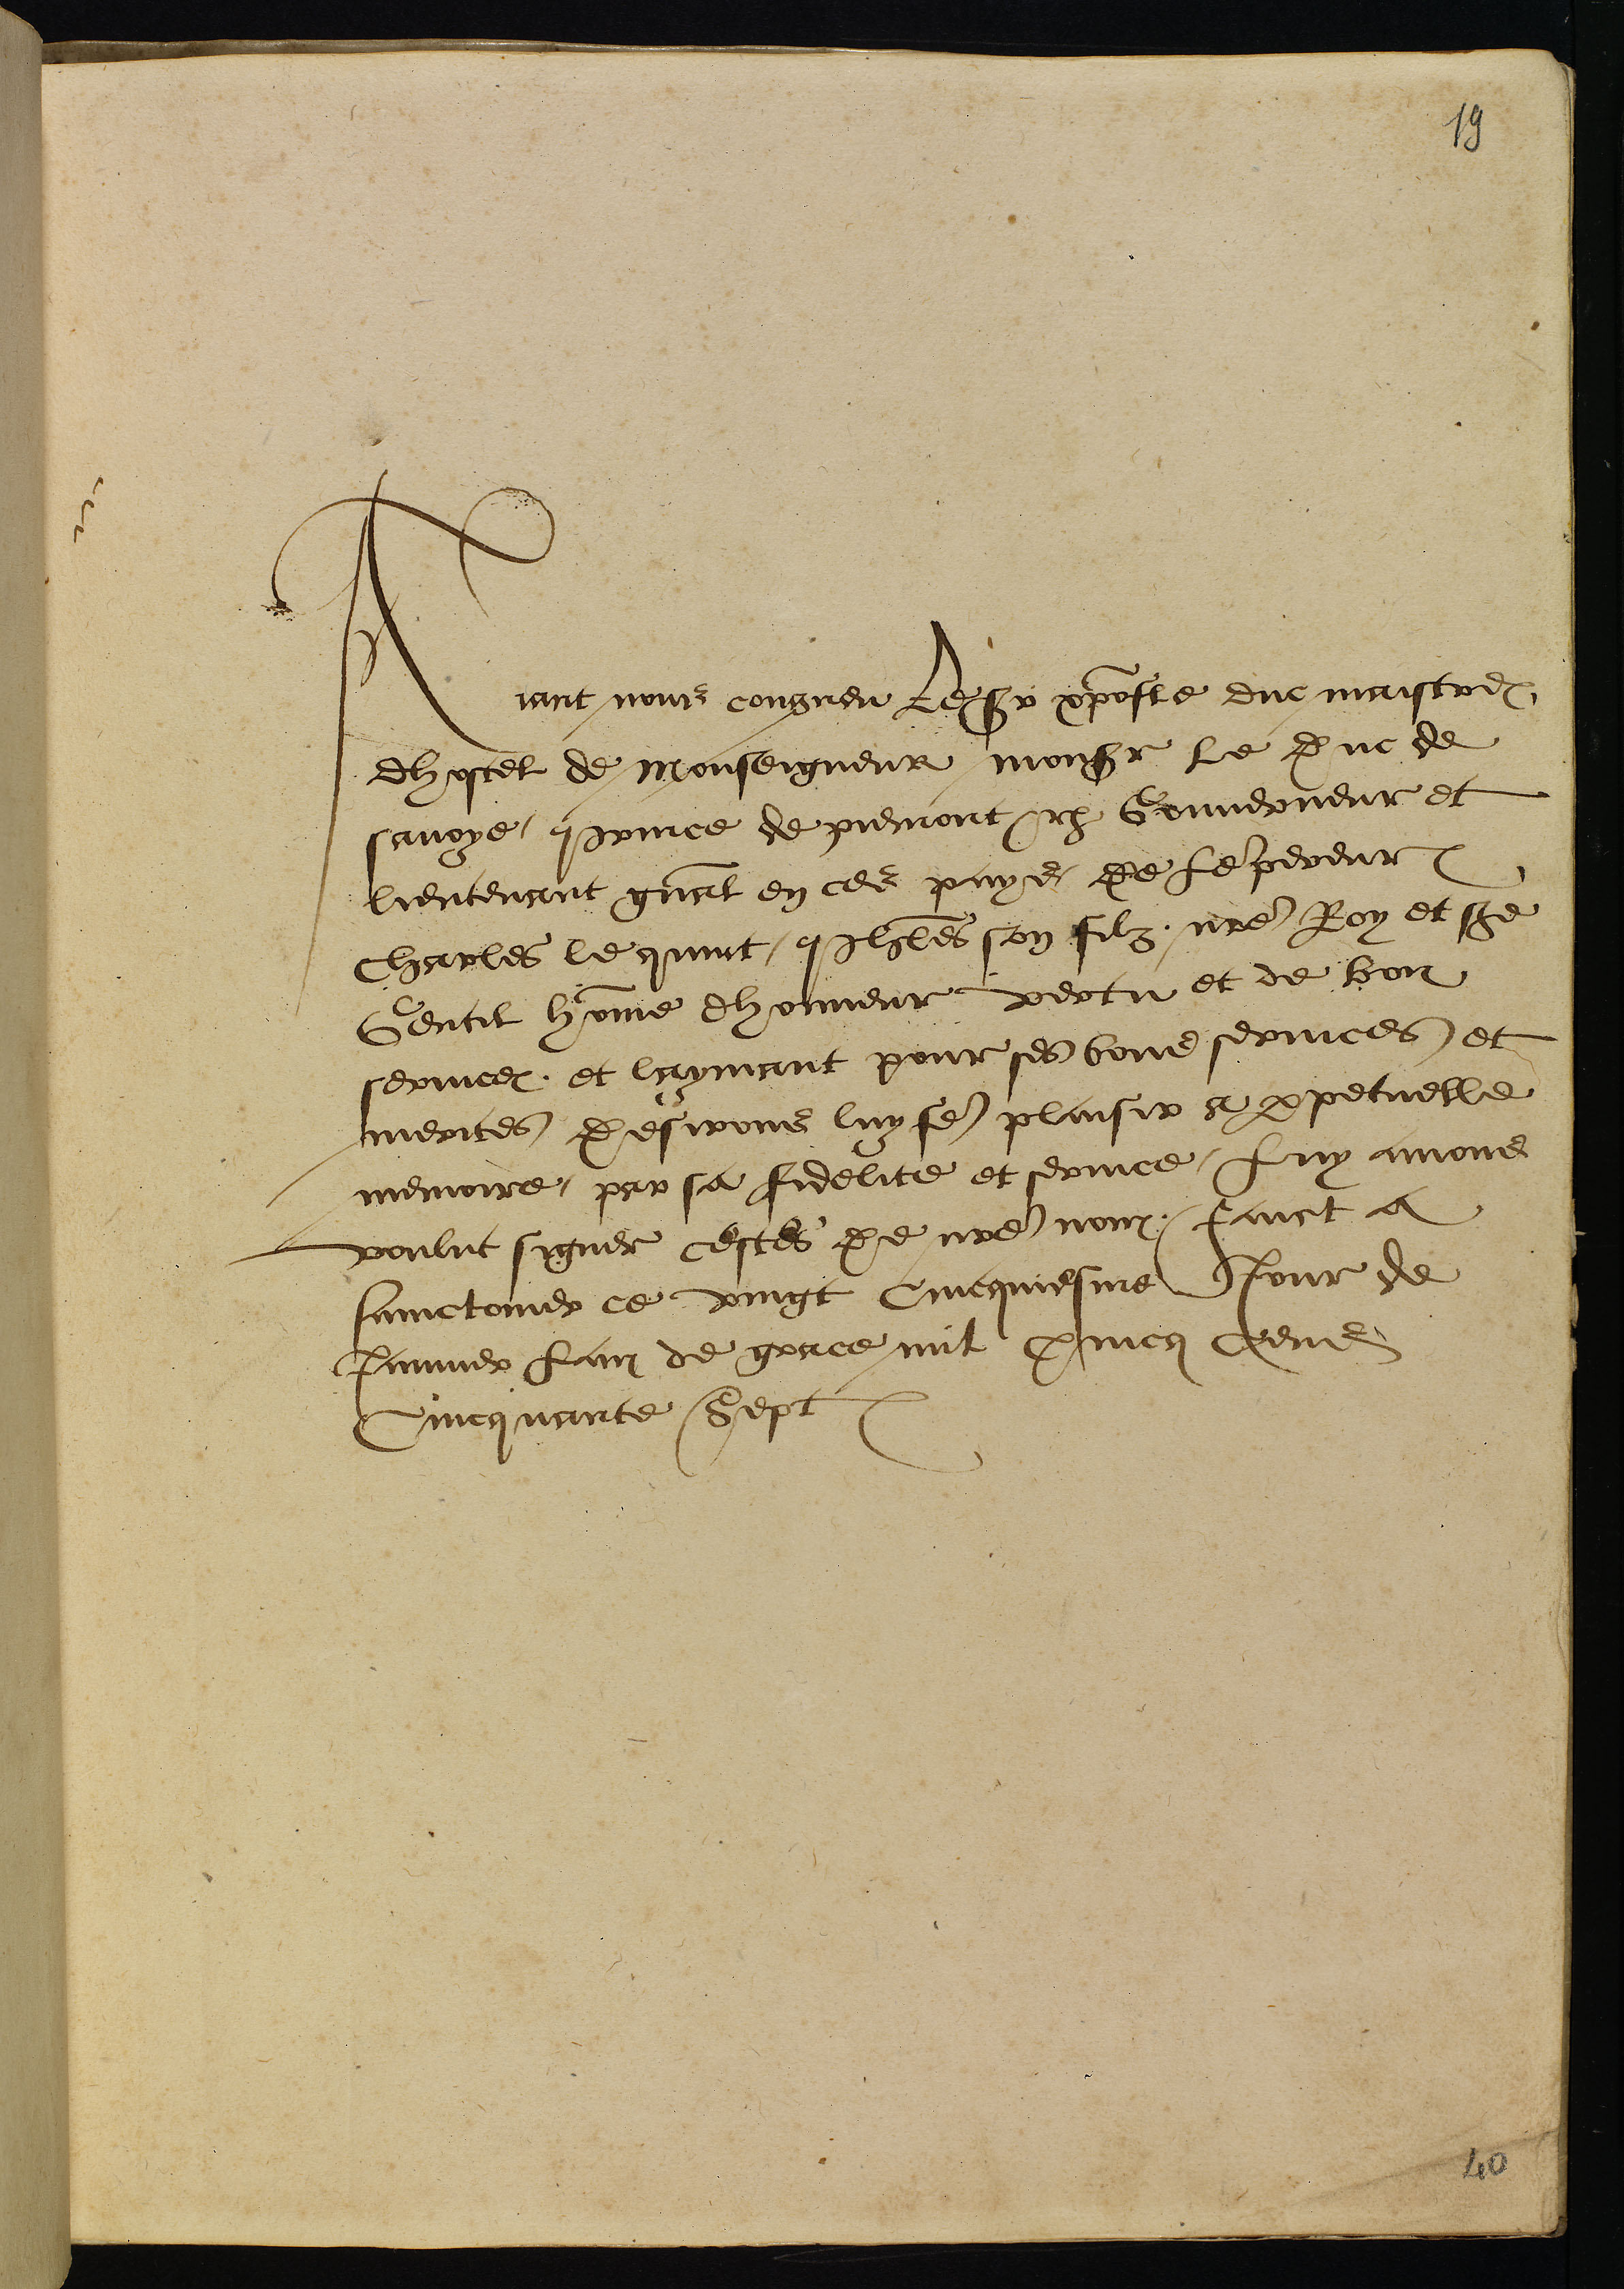 19
Aiant nous congneu Le sr xpofle duc maistre
dhostel de Monseigneur monsr le Duc de
savoye, prince de piemont Gouverneur et
lieutenant gnal en ces pays De Lempereur
Charles le quint, philes son filz. nre Roy et sre
Gentil home dhonneur vertu et de bon
service. et laymant pour ses bons services et
merites Desirons luy fe plaisir a perpetuelle
memoire, par sa fidelite et service, Luy avons
voulut signer cestes De nre nom. faict a
sainctomer ce vingt Cincquiesme Jour de
Janvier Lan de grace mil Cincq Cens
Cincquante Sept
40